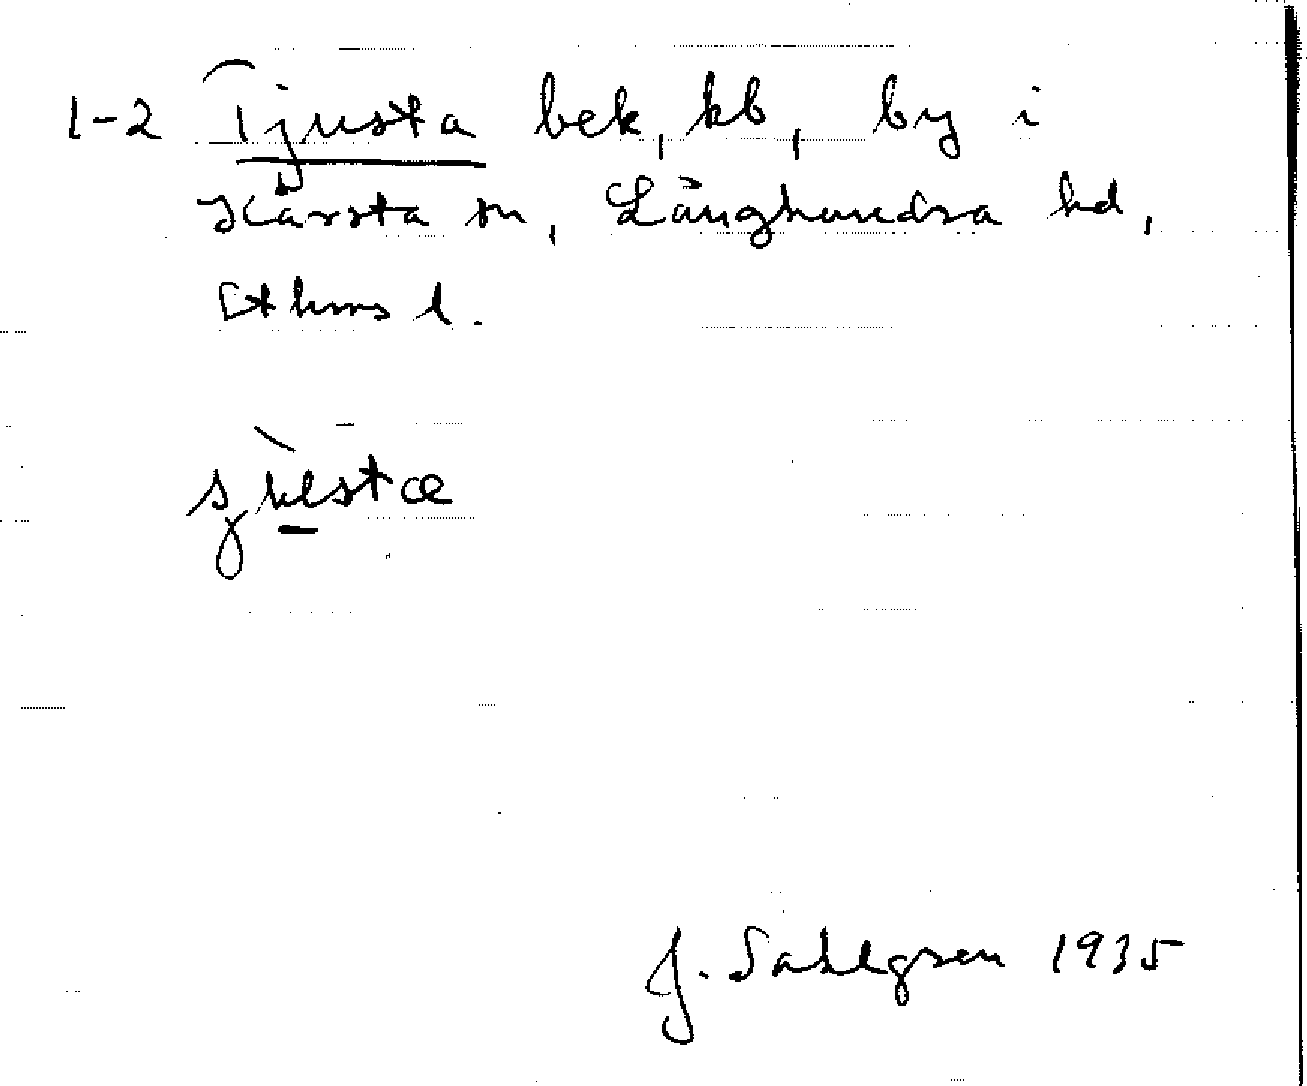 1-2 Tjusta bek, kb, by i
Kårsta sn, Långhundra hd,
Sthms l.
J. Sahlgren 1935